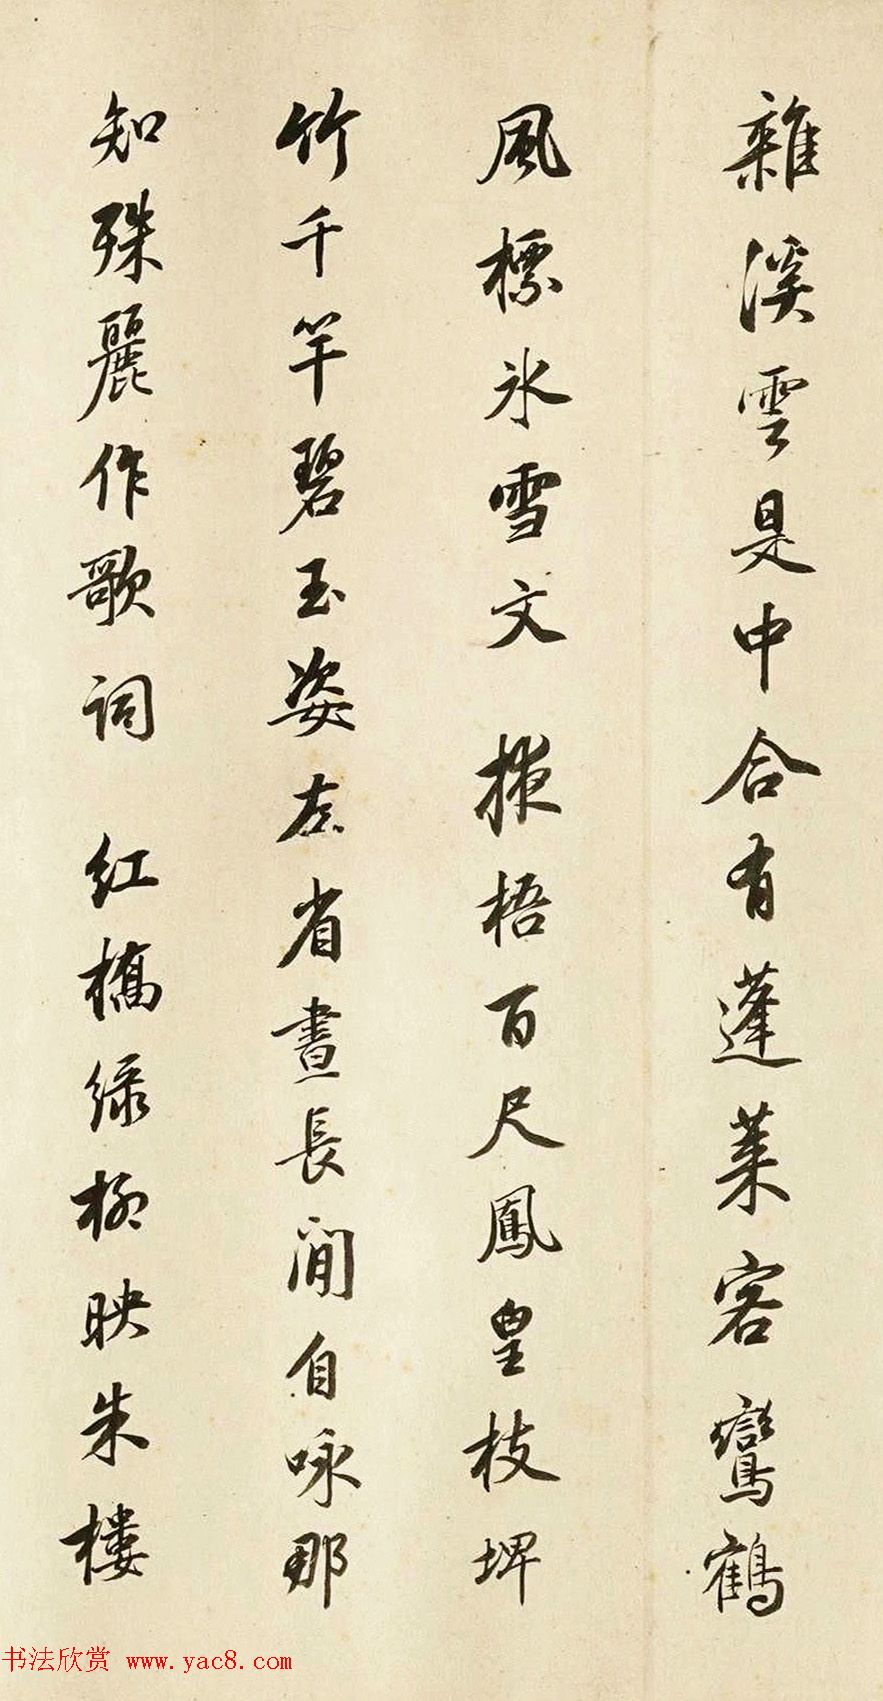 雜溪雲是中合有蓬莱客鸞鶴
風標氷雪文 掖梧百尺鳳皇枝埤
竹千竿碧玉姿左省晝長閒自咏那
知殊麗作歌詞 红橋绿柳映朱樓
书法欣赏 www.yac8.com